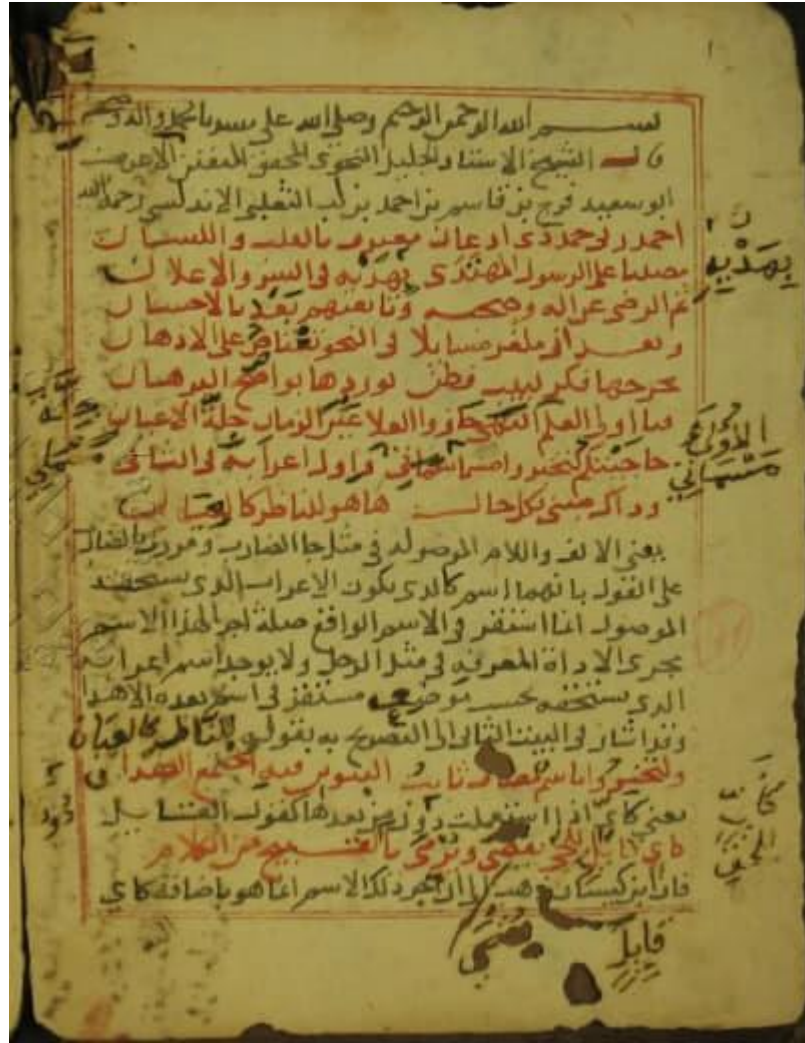 بسم الله الرحمن الرحيم وصلى الله على سيدنا محمد واله وصحبه
قال الشيخ الاستاذ الجليل النحوي المحقق المتفنن
ابو سعيد فرج بن قاسم بن احمد بن لب التغلبي الاندلسي رحمه الله
احمد ربي حمد ذي اذعان معترف بالقلب واللسان
مصليا على الرسول المهتدى بهديه في السر والاعلان
ثم الرضى عن اله وصحبه وتابعيهم بعد بالاحسان
وبعد اني ملغز مسايلا في النحو تعتاص على الاذهان
يخرجها فكر لبيب فطن يوردها بواضح البرهان
فيا اولى العلم حازوا العلا عين الزمان جلة الاعيان
حاجيتكم لتخبروا ما اسمان واول اعرابه في الثاني
وذاك مبني بكل حال هاهو للناظر كالعيان
يعني الالف واللام الموصولة في مثل جا الضارب ومررت بالضارب
على القول بانهما اسم كالذي يكون الاعراب الذي يستحقه
الموصول انما استقر في الاسم الواقع صلة اجر لهذا الاسم
مجرى الاداة المعرفة في مثل الرجل ولا يوجد اسم اعرابه
الذي يستحقه بحسب موضعه مستقر في اسم بعده الا هذا
وقد اشار في البيت الثاني الى التصريح به بقوله للناظر كالعيان
ولتخبروا باسم مضاف ثابت التنوين فيه اجتمع الضدان
يعني كاي اذا استعملت دون من بعدها كقول القايل
كاي قايل للحق يقضي ويرمى بالقبيح من الكلام
فان ابن كيسان ذهب الى ان جر ذلك الاسم انما هو باضافة كاي
بهديه
الاولى
قايل
يقضي